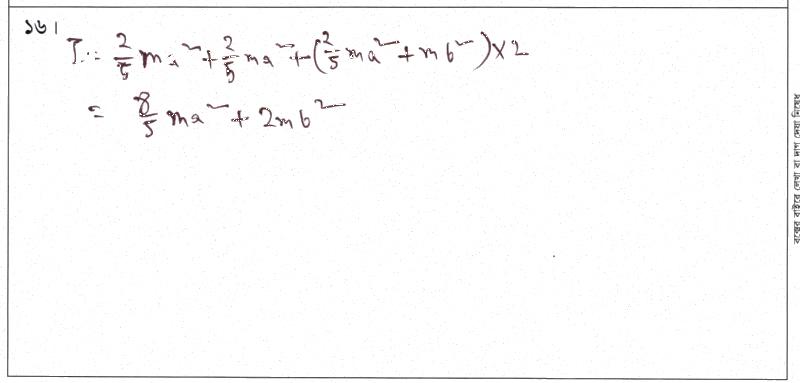 ১৬।
I = 2/5 ma² + 2/5 ma² + (2/5 ma² + mb²) × 2
= 8/5 ma² + 2mb²
বক্সের বাইরে লেখা বা দাগ দেয়া নিষেধ